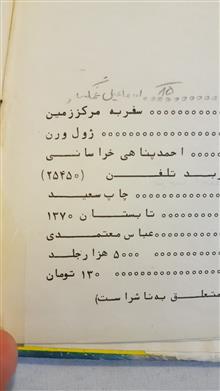 ۱۵ اسماعیل
سفربه مرکززمین
ژول ورن
احمدپناهی خراسانی
ربد تلفن (۲۵۴۵۰)
چاپ سعید
تابستان ۱۳۷۰
عباس معتمدی
۵۰۰۰ هزارجلد
۱۳۰ تومان
متعلق به ناشراست)